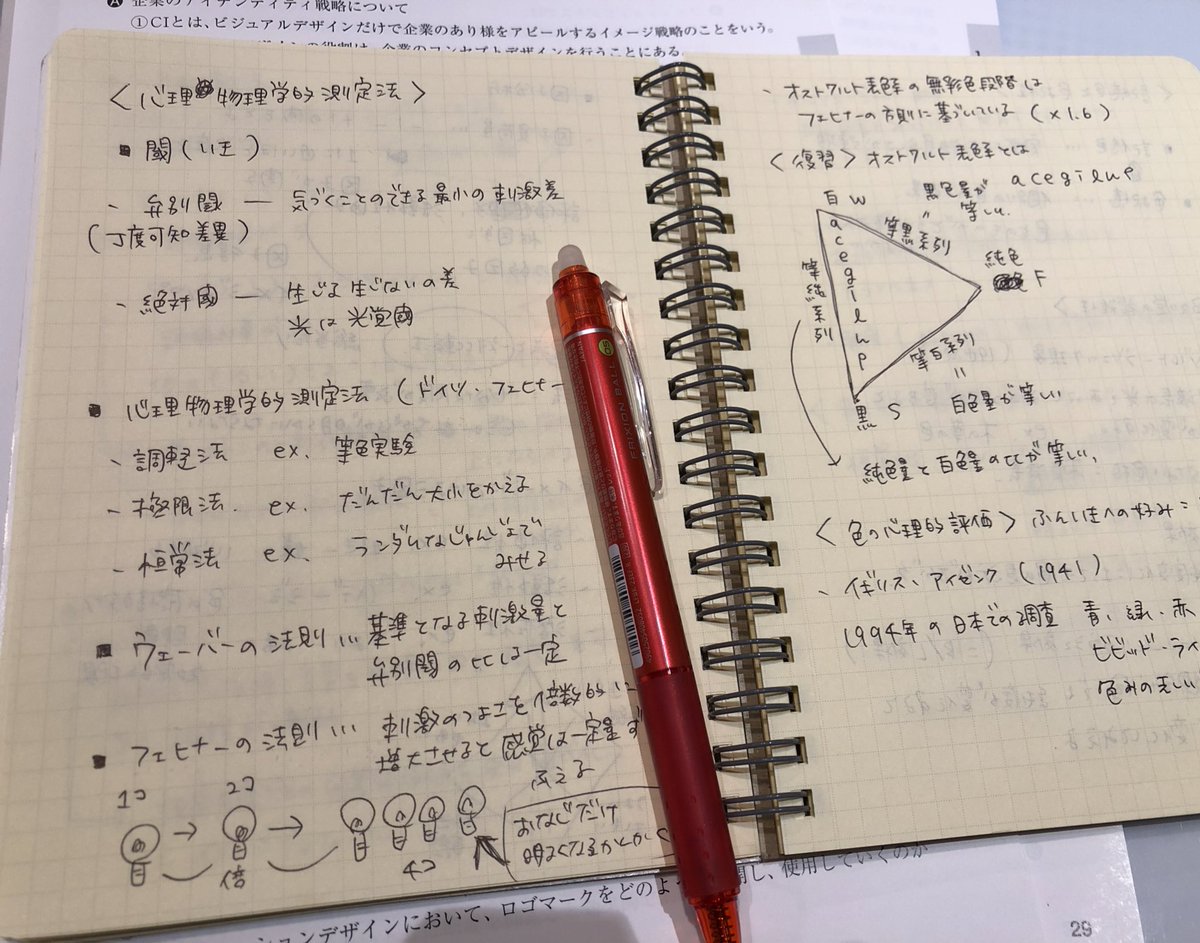 企業のアイデンティティ戦略について
①CIとは、ビジュアルデザインだけで企業のあり様をアピールするイメージ戦略のことをいう。
の役割は、企業のコンセプトデザインを行うことにある。
〈心理物理学的測定法〉
▪ 閾(いき)
、弁別閾 — 気づくことのできる最小の刺激差
(丁度可知差異)
、絶対閾 — 生じる生じないの差
光は光覚閾
▪ 心理物理学的測定法 (ドイツ、フェヒナー
、調整法 ex. 等色実験
、極限法. ex. だんだん大小をかえる
、恒常法 ex. ランダムなじゅんじょで
みせる
▪ ウェーバーの法則… 基準となる刺激量と
弁別閾の比は一定
▪ フェヒナーの法則… 刺激のつよさを倍数的に
増大させると感覚は一定量ず
ふえる
1コ 2コ
倍
4コ
おなじだけ
明るくなるかんかく
FRIXION BALL
、オストワルト表色系の無彩色段階は
フェヒナーの方則に基づいている (×1.6)
〈復習〉オストワルト表色系とは
acegilnp
白 W
黒色量が
等しい.
等黒系列
acegilnp
等純系列
純色
F
等白系列
黒 S
白色量が等しい
純色量と白色量の比が等しい、
〈色の心理的評価〉ふんい生への好み
、イギリス、アイゼンク (1941)
1994年の日本での調査 青、緑、赤
ビビッド・ライ
色みの
ションデザインにおいて、ロゴマークをどのよう 開し、使用していくのが
29